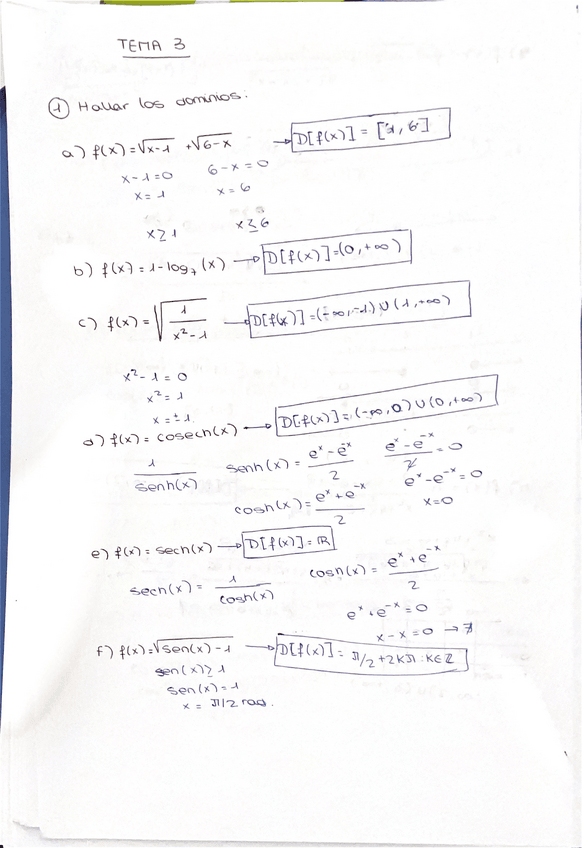 TEMA 3
① Hallar los dominios:
a) f(x)=√x-1 +√6-x → D[f(x)] = [1, 6]
x-1=0 6-x=0
x=1 x=6
x≥1 x≤6
b) f(x)=1-log₇(x) → D[f(x)]=(0,+∞)
c) f(x)=√1/(x²-1) → D[f(x)]=(-∞,-1)∪(1,+∞)
x²-1=0
x²=1
x=±1
d) f(x)=cosech(x) → D[f(x)]=(-∞,0)∪(0,+∞)
1/senh(x) senh(x)= (eˣ-e⁻ˣ)/2 (eˣ-e⁻ˣ)/2=0
eˣ-e⁻ˣ=0
cosh(x)= (eˣ+e⁻ˣ)/2 x=0
e) f(x)=sech(x) → D[f(x)]=ℝ
sech(x)= 1/cosh(x) cosh(x)= (eˣ+e⁻ˣ)/2
eˣ+e⁻ˣ=0
x-x=0 → ∄
f) f(x)=√sen(x)-1 → D[f(x)]= π/2+2kπ:k∈ℤ
sen(x)≥1
sen(x)=1
x = π/2 rad.